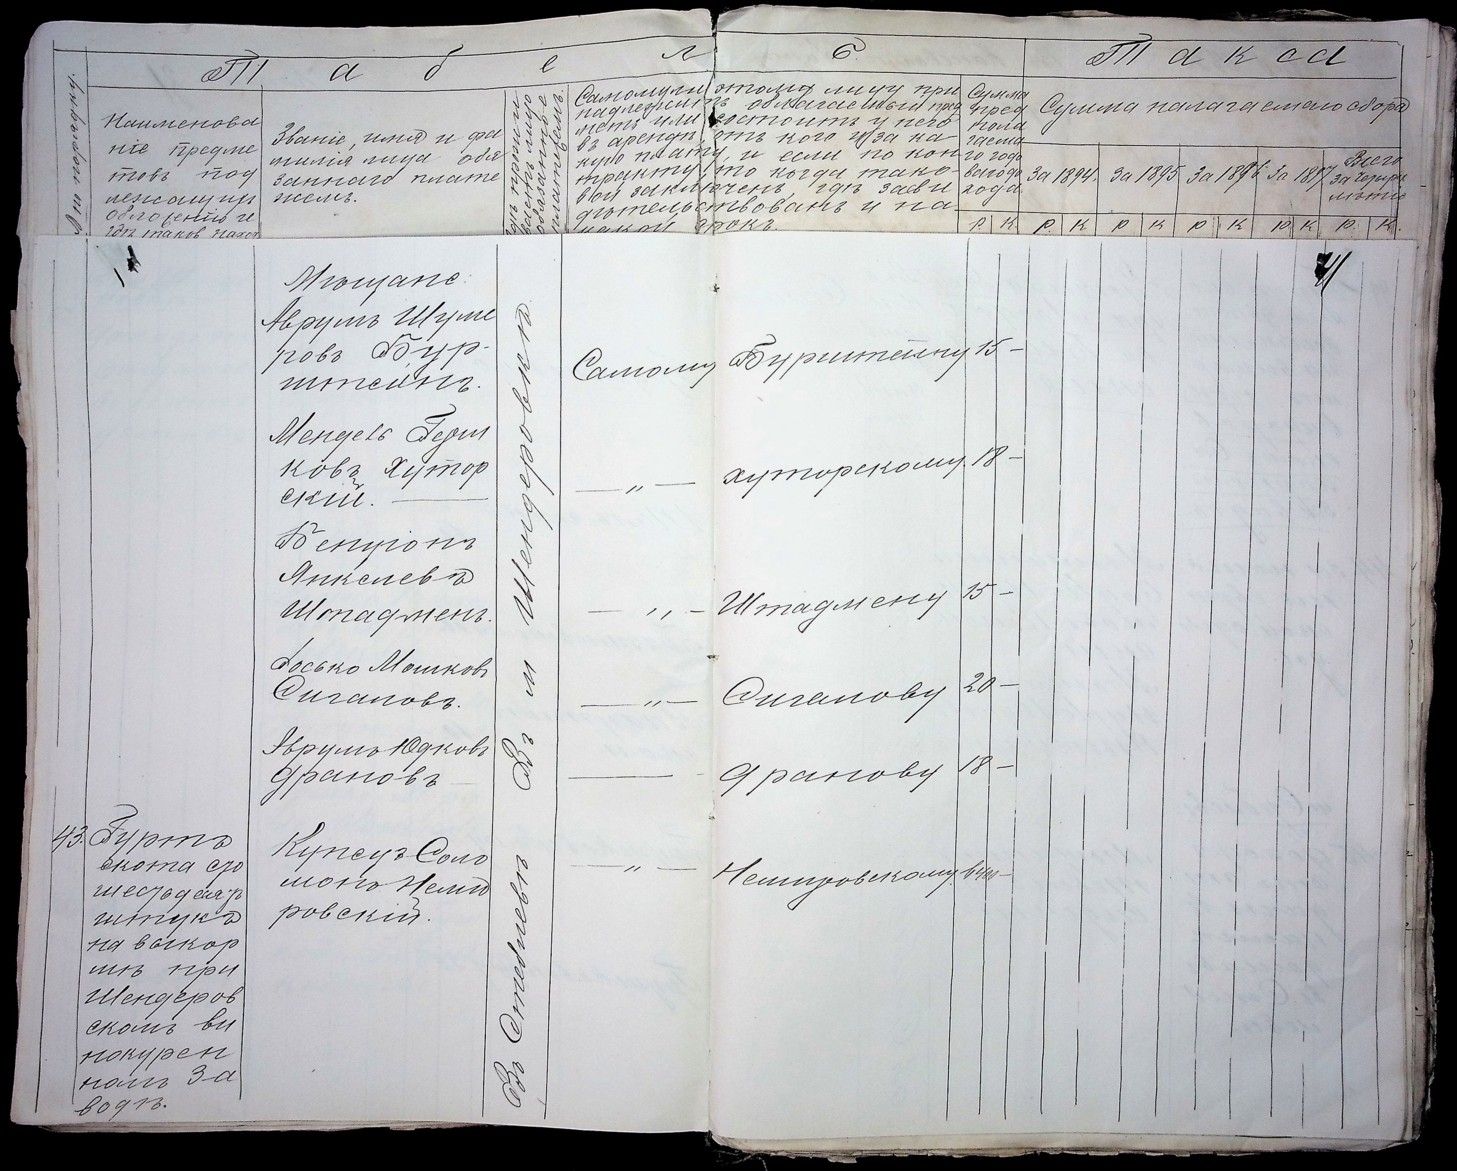 Табель
Такса
Наименова
ніе предме
товъ под
лежащихъ
обложенію и
гдѣ таков. наход
Званіе, имя и фа
милія лица обя
заннаго плате
жемъ.
Гдѣ прожи
ваетъ лицо
обязанное
платежемъ.
Самому ли этому лицу при
надлежитъ облагаемый пред
метъ или состоитъ у него
въ арендѣ, отъ кого и за ка-
кую плату, и если по кон
тракту, то когда тако-
вой заключенъ, гдѣ засви
дѣтельствованъ и на
какой срокъ.
Сумма
пред
пола
гаема
го годо
ваго до
хода
Сумма налагаемаго сбора
За 1894.
За 1895
За 1896
За 1897
Всего
за четыре
лѣтіе
р. к. р. к р к р к р к р. к.
41
Мѣщане:
Аврумъ Шуле
ровъ Бур-
штейнъ.
Самому Бурштейну 15 —
Мендель Герш
ковъ Хутор
скій.
— „ — Хуторскому 18 —
Бенціонъ
Янкелевъ
Штадменъ.
— „ — Штадмену 15 —
Іосько Мошковъ
Сигаловъ.
— „ — Сигалову 20 —
Аврумъ Юдковъ
Драновъ
— Дранову 18 —
Въ м Шендеровкѣ
43. Гуртъ
скота сто
шестьдесятъ
штукъ
на выкор
мѣ при
Шендеров
скомъ ви
нокурен
номъ за
водѣ.
Купецъ Соло
монъ Неми
ровскій.
Въ Стеблевѣ
— „ — Немировскому